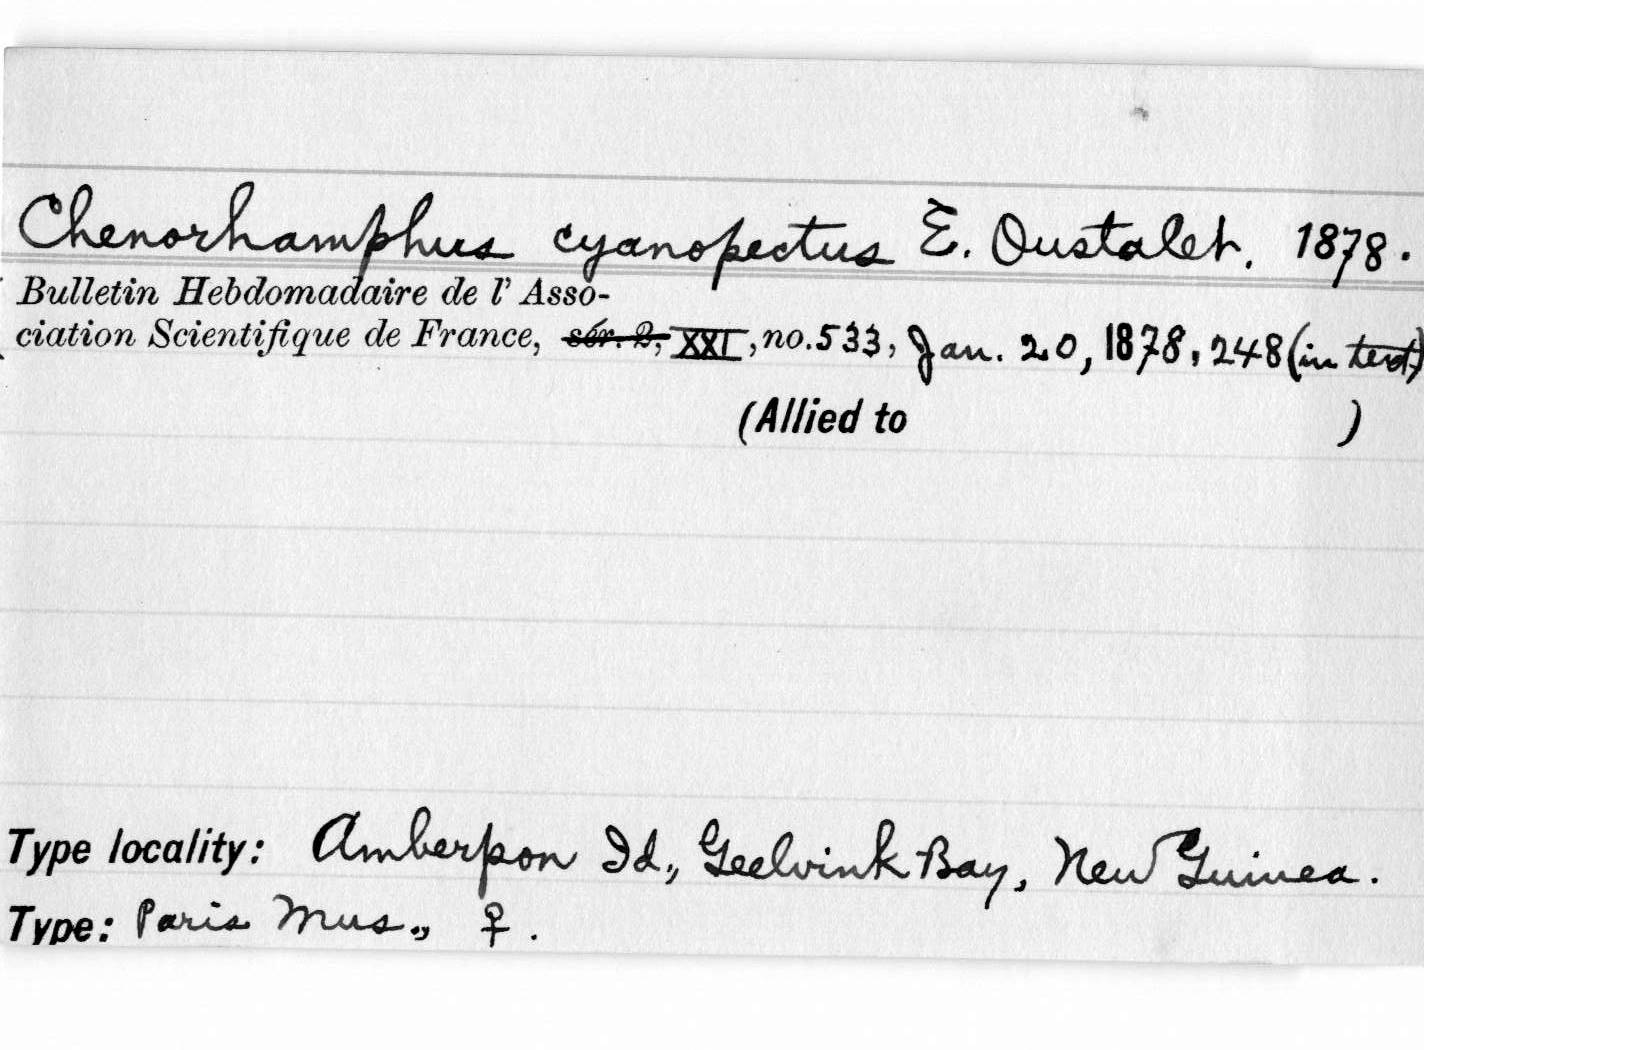 Chenorhamphus cyanopectus E. Oustalet. 1878.
Bulletin Hebdomadaire de l' Asso-
ciation Scientifique de France, sér. 2, XXI, no. 533, Jan. 20, 1878, 248 (in text)
(Allied to )
Type locality: Amberpon Id., Geelvink Bay, New Guinea.
Type: Paris Mus., ♀.